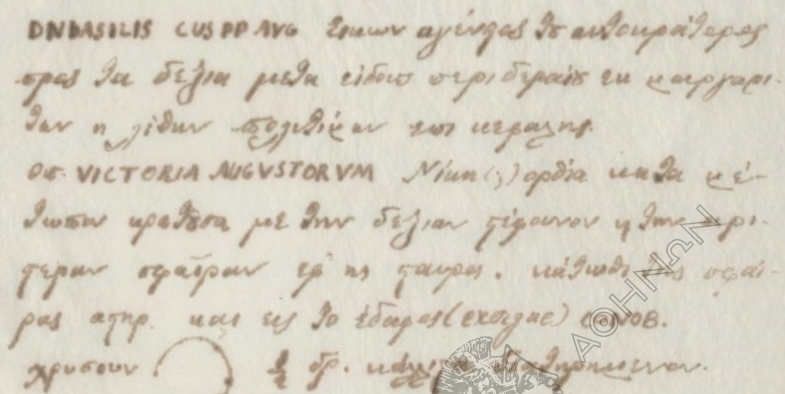 DNBASILIS CUSPPAVG Εικων αγένειος τȣ αυτοκράτορος
προς τα δεξιά μετα είδους περιδεραίȣ εκ μαργαρι-
των η λίθων πολυτίμων επι κεφαλης.
Οπ. VICTORIA AVGVSTORVM Νίκη (;) ορθία κατα μέ-
τωπον κρατȣσα με την δεξιαν στέφανον κ την αρι-
στεραν σφαῖραν εφ' ης σταυρος. κάτωθι της σφαί-
ρας αστηρ. και εις το έδαφος (exergue) CONOB.
χρυσουν 1/2 δρ. διατηρημενον.
ΑΘΗΝΩΝ